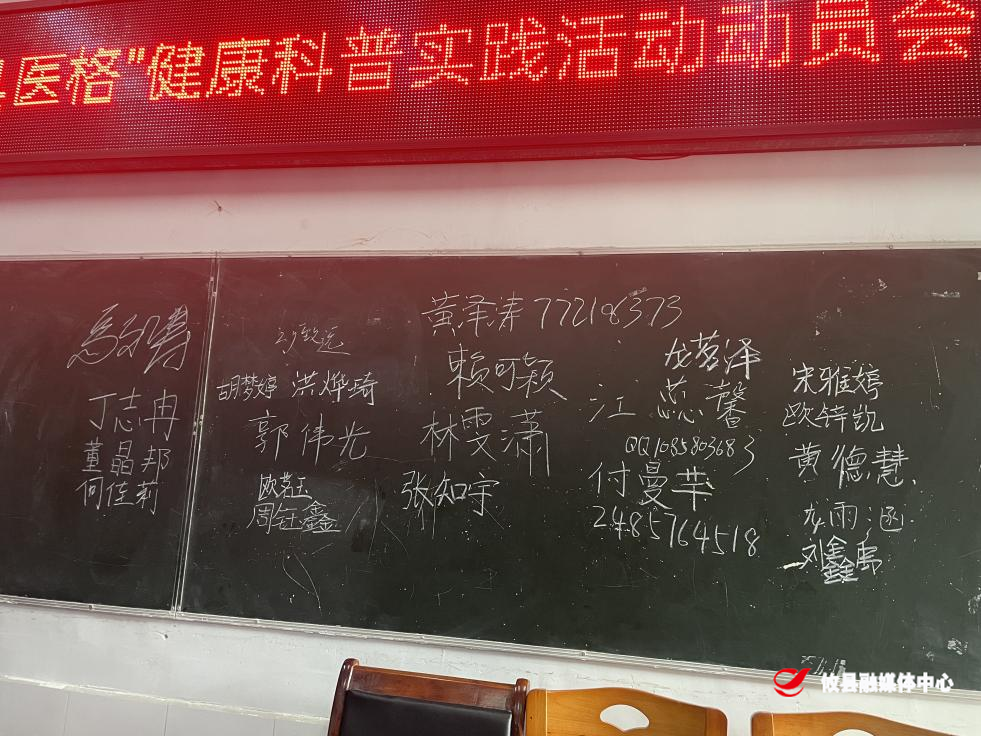 医格"健康科普实践活动动员会
丁志冉
董晶邦
何佳莉
胡梦婷 洪烨琦
郭伟光
欧若玉
周钰鑫
黄泽涛 772196373
赖可颖
林雯潇
张知宇
龙茗泽
江蕊馨
QQ1085803683
付曼苹
2485764518
宋雅婷
欧锌凯
黄德慧.
龙雨涵
刘鑫禹
攸县融媒体中心